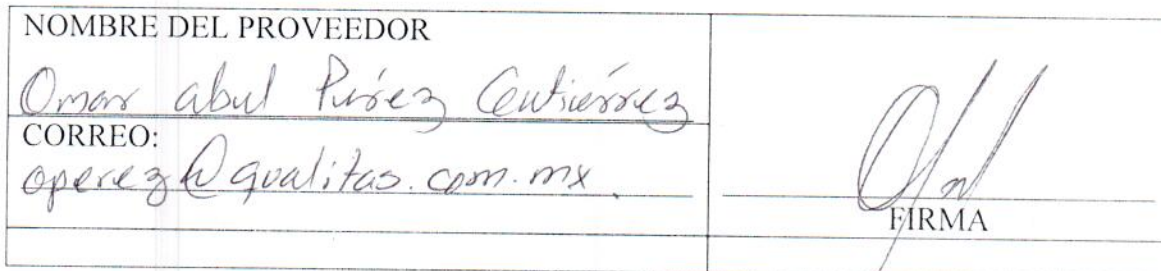 NOMBRE DEL PROVEEDOR
Omar abul Pérez Gutiérrez
CORREO:
operez@qualitas.com.mx
FIRMA